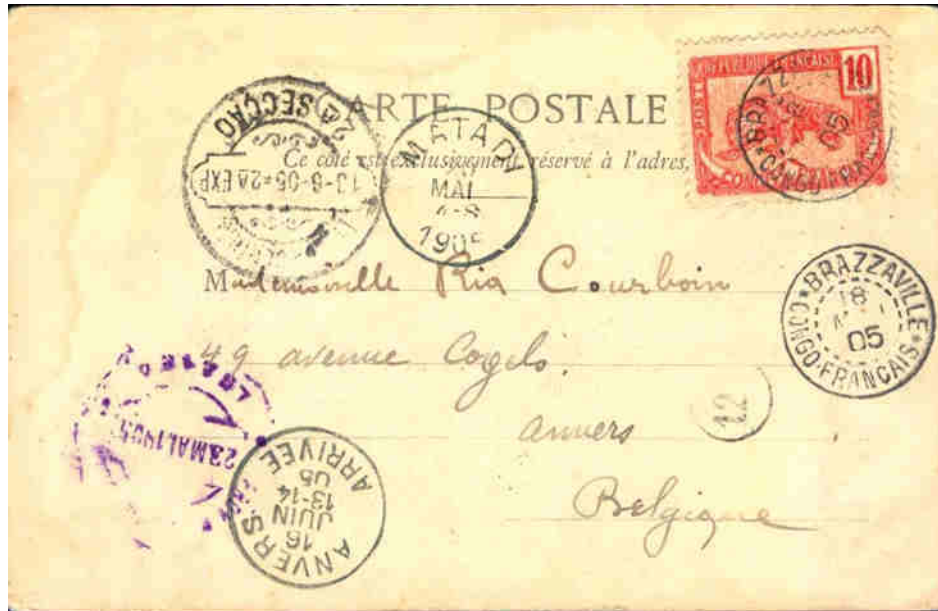 CARTE POSTALE
Ce côté est exclusivement réservé à l'adres
RÉPUBLIQUE FRANÇAISE
10
POSTE
CONGO FRANÇAIS
2A SECÇÃO
13-6-05 * 2A EXP
MATADI
MAI
190
BRAZZAVILLE
18
05
CONGO-FRANÇAIS
Mademoiselle Ria Courboin
49 avenue Cogels.
Anvers
Belgique
12
23 MAI 1905
ANVERS
16
JUIN
13-14
05
ARRIVÉE